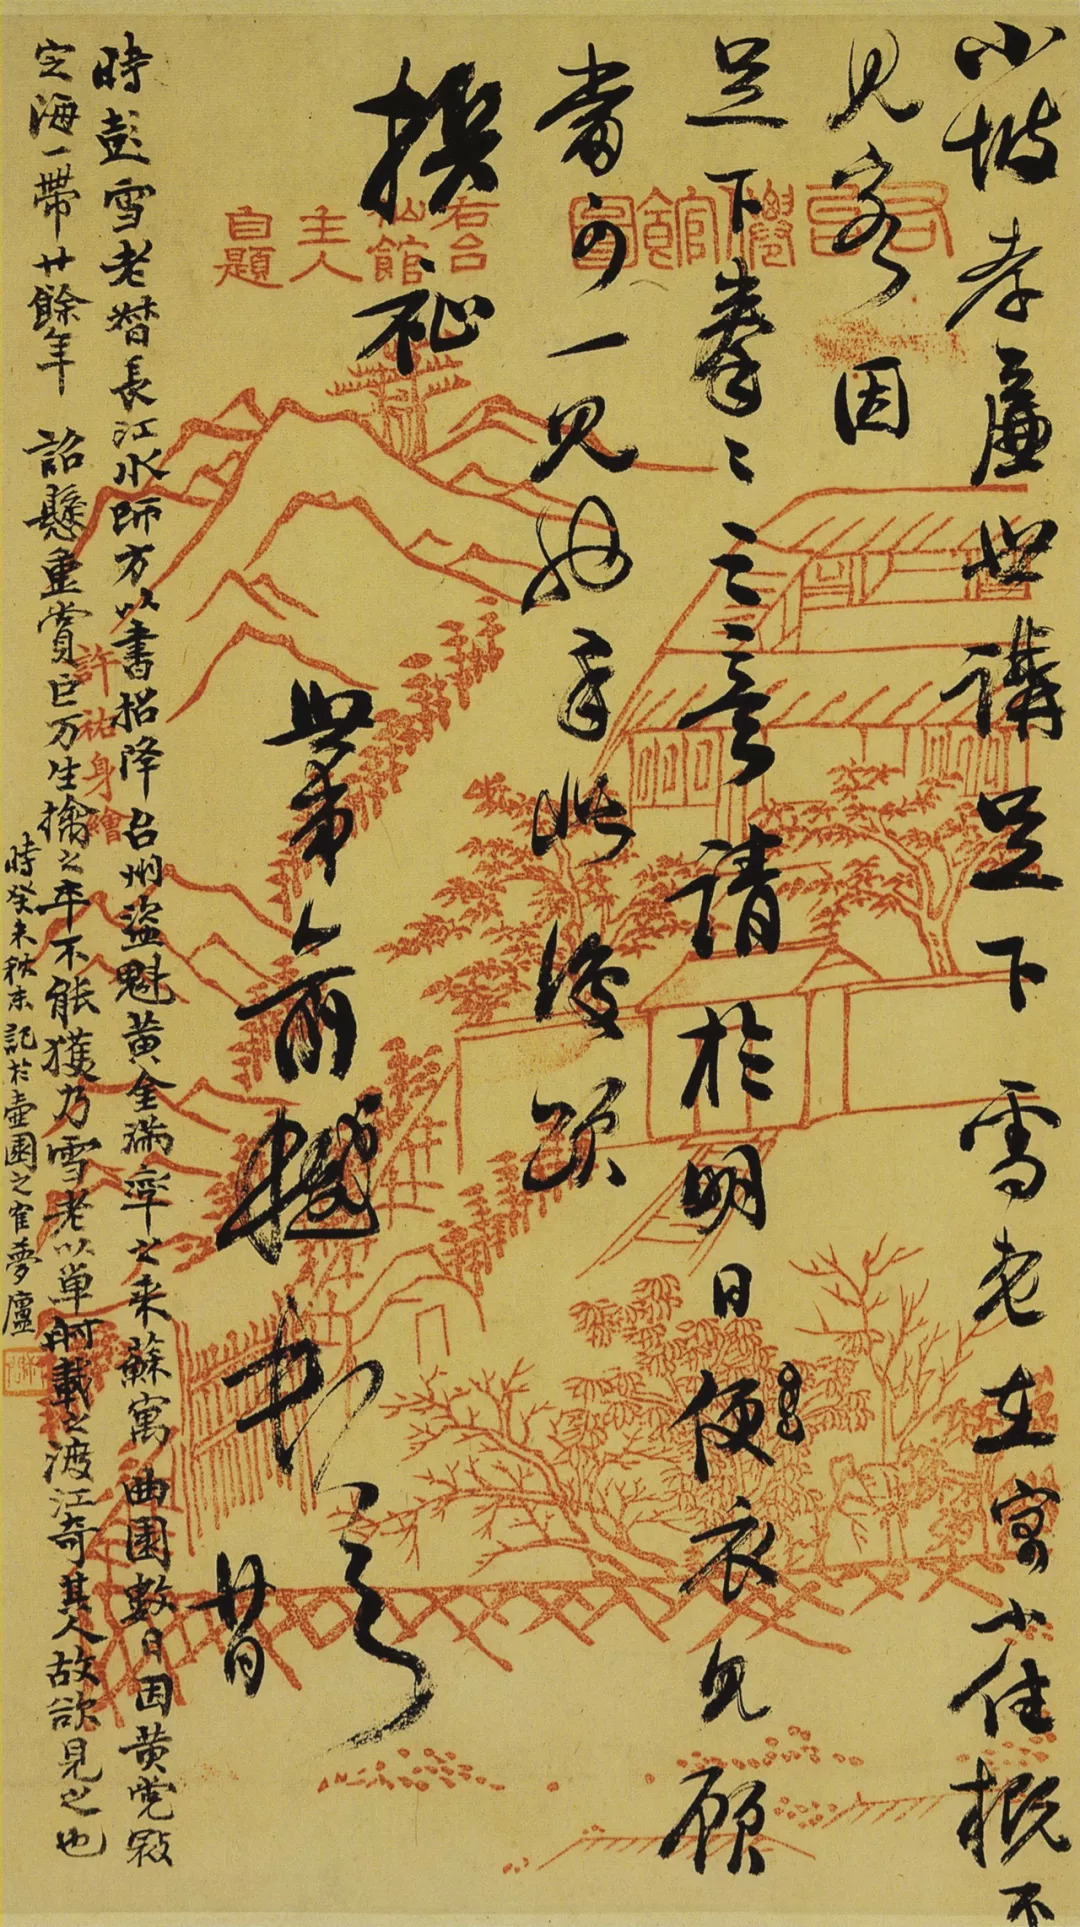 小坡孝廉世講足下雪老在寓小住概不
見客因
足下拳之意請於明日便衣見顧
當可一見也手此復頌
撰祉
世弟俞樾頓首
廿日
時彭雪老督長江水師方以書招降台州盜魁黃金滿率之來蘇寓曲園數日因黃党嘯
定海一帶廿餘年 詔懸重賞巨万生擒之卒不能獲乃雪老以單舸載之渡江奇其人故欲見之也
時癸未秋末記於壺園之寉夢廬
右台仙館圖
右台
仙館
主人
自題
許祐身繪